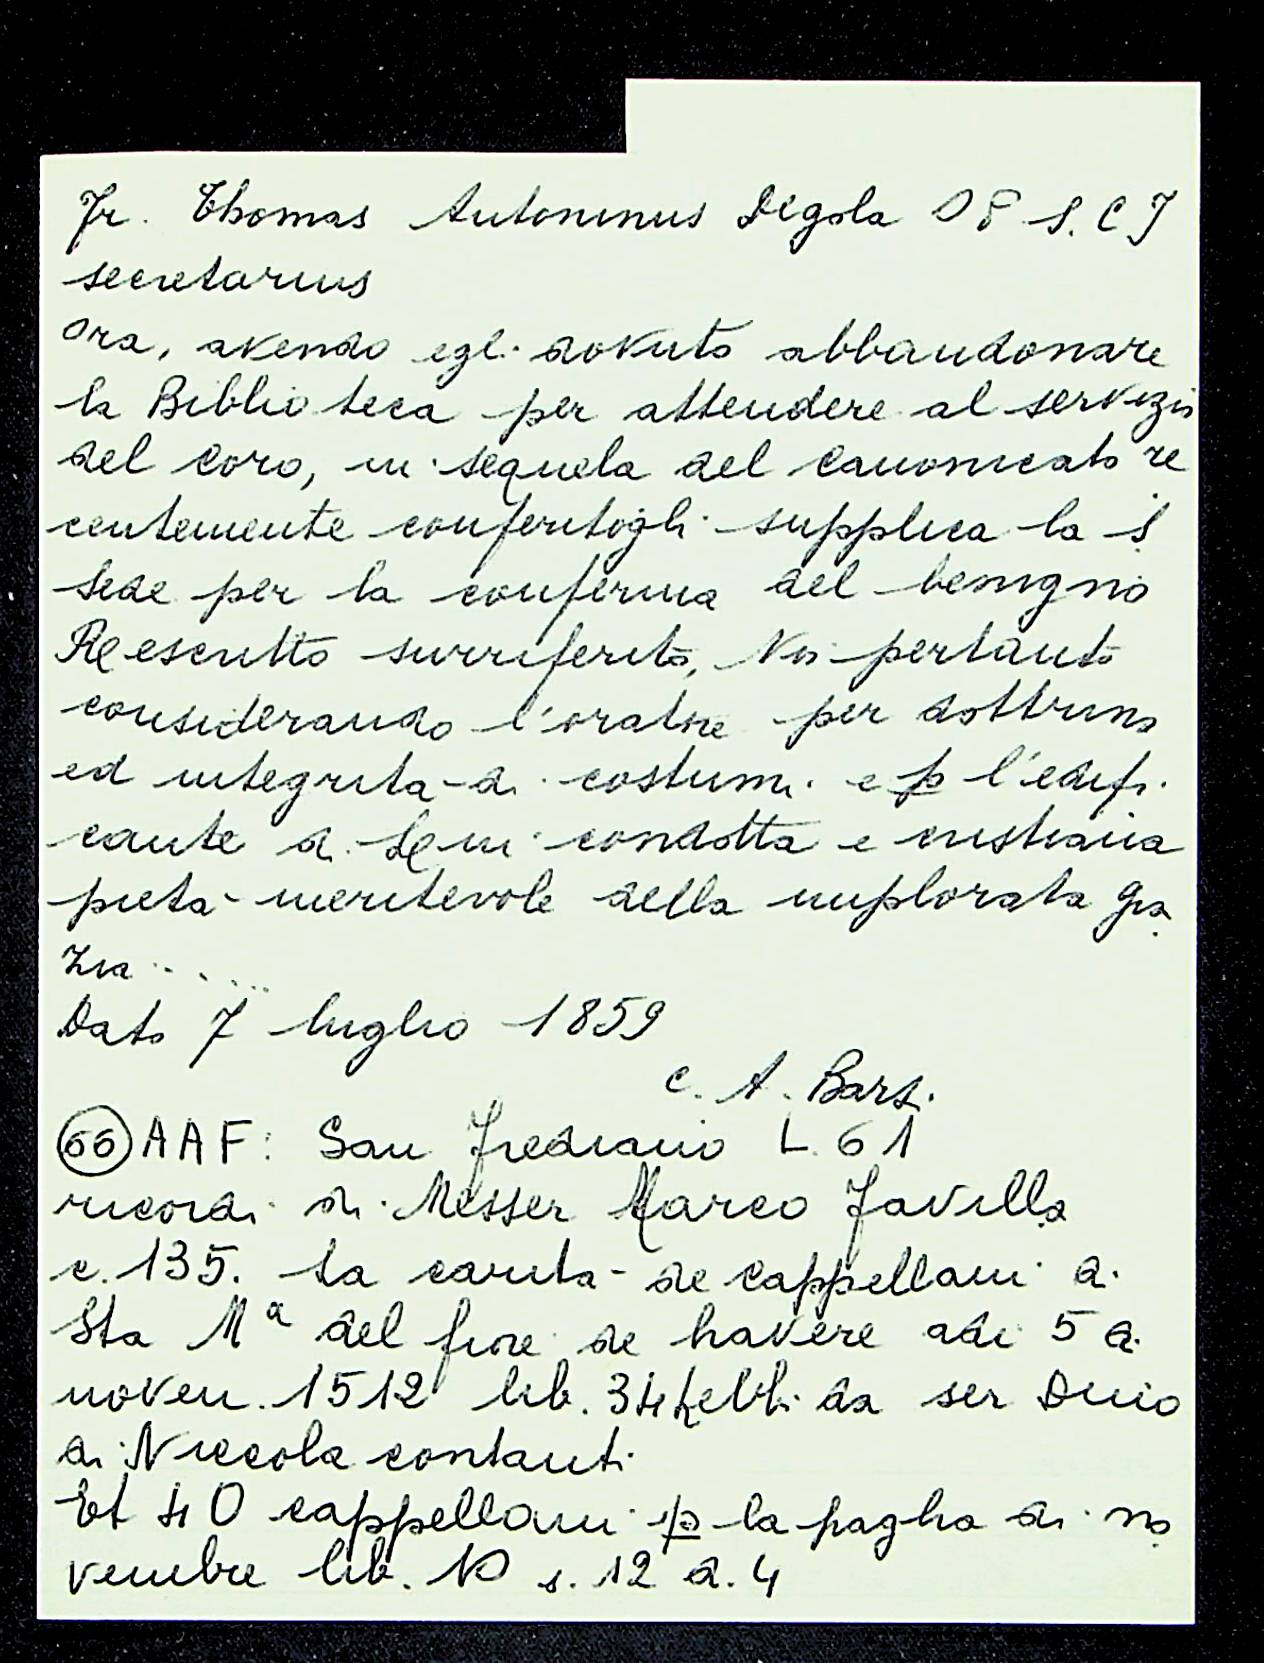 Fr. Thomas Antoninus Degola O P S. C J
secretarius
Ora, avendo egli dovuto abbandonare
la Biblioteca per attendere al servizio
del coro, in sequela del canonicato re
centemente conferitogli supplica la S.
Sede per la conferma del benigno
Rescritto surriferito, Noi pertanto
considerando l'oratore per dottrina
ed integrità di costumi e p l'edifi
cante di condotta e cristiana
pietà meritevole della implorata gra
zia .....
Dato 7 luglio 1859
C. A. Bars.
66 AAF: San Frediano L. 61
ricordi di Messer Marco Favilla
c. 135. la carità de cappellani di
Sta Mª del fiore de havere adi 5 di
noven. 1512 lib. 34 da ser Dino
di Niccola contanti
Et 40 cappellani p la pagha di no
vembre lib. 10 s. 12 d. 4